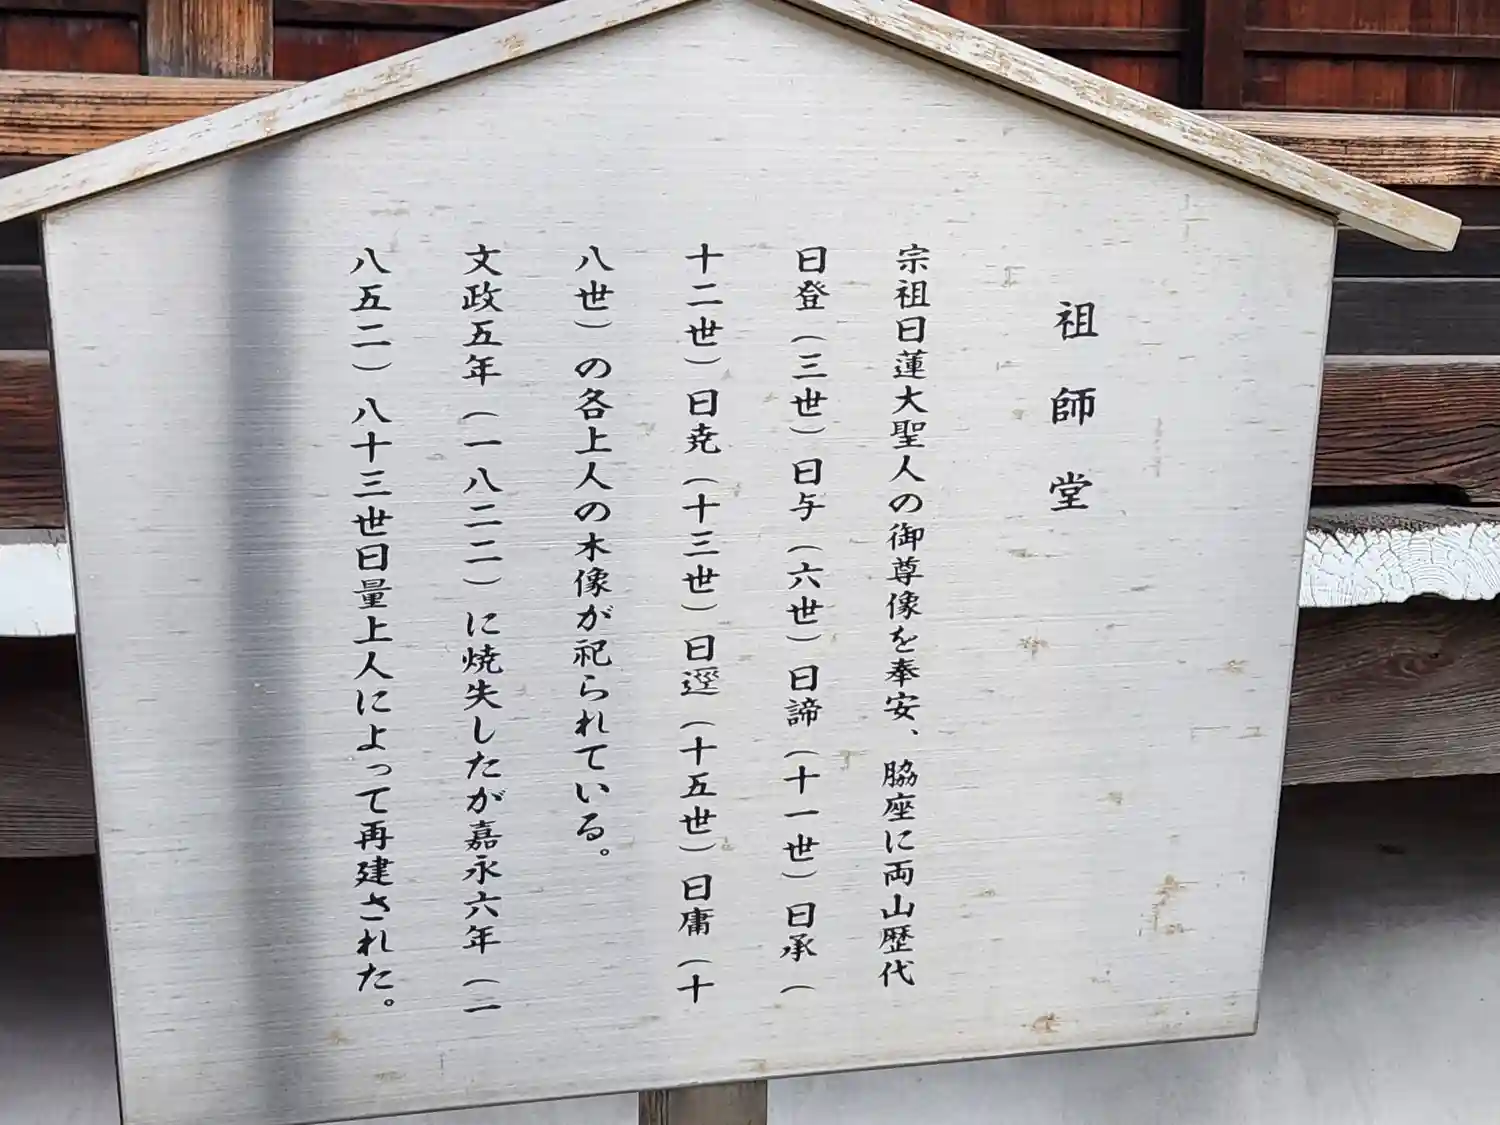 祖師堂
宗祖日蓮大聖人の御尊像を奉安、脇座に両山歴代
日登（三世）日与（六世）日諦（十一世）日承（
十二世）日尭（十三世）日遥（十五世）日庸（十
八世）の各上人の木像が祀られている。
文政五年（一八二二）に焼失したが嘉永六年（一
八五二）八十三世日量上人によって再建された。